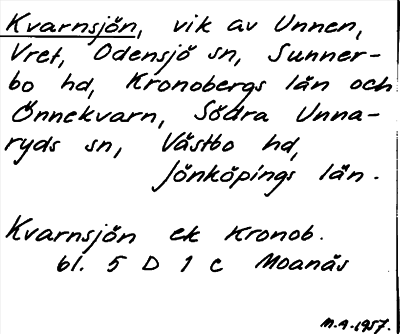 Kvarnsjön, vik av Unnen,
Vret, Odensjö sn, Sunner-
bo hd, Kronobergs län och
Önnekvarn, Södra Unna-
ryds sn, Västbo hd,
Jönköpings län.
Kvarnsjön ek Kronob.
bl. 5 D 1 c Moanäs
M.A.1957.